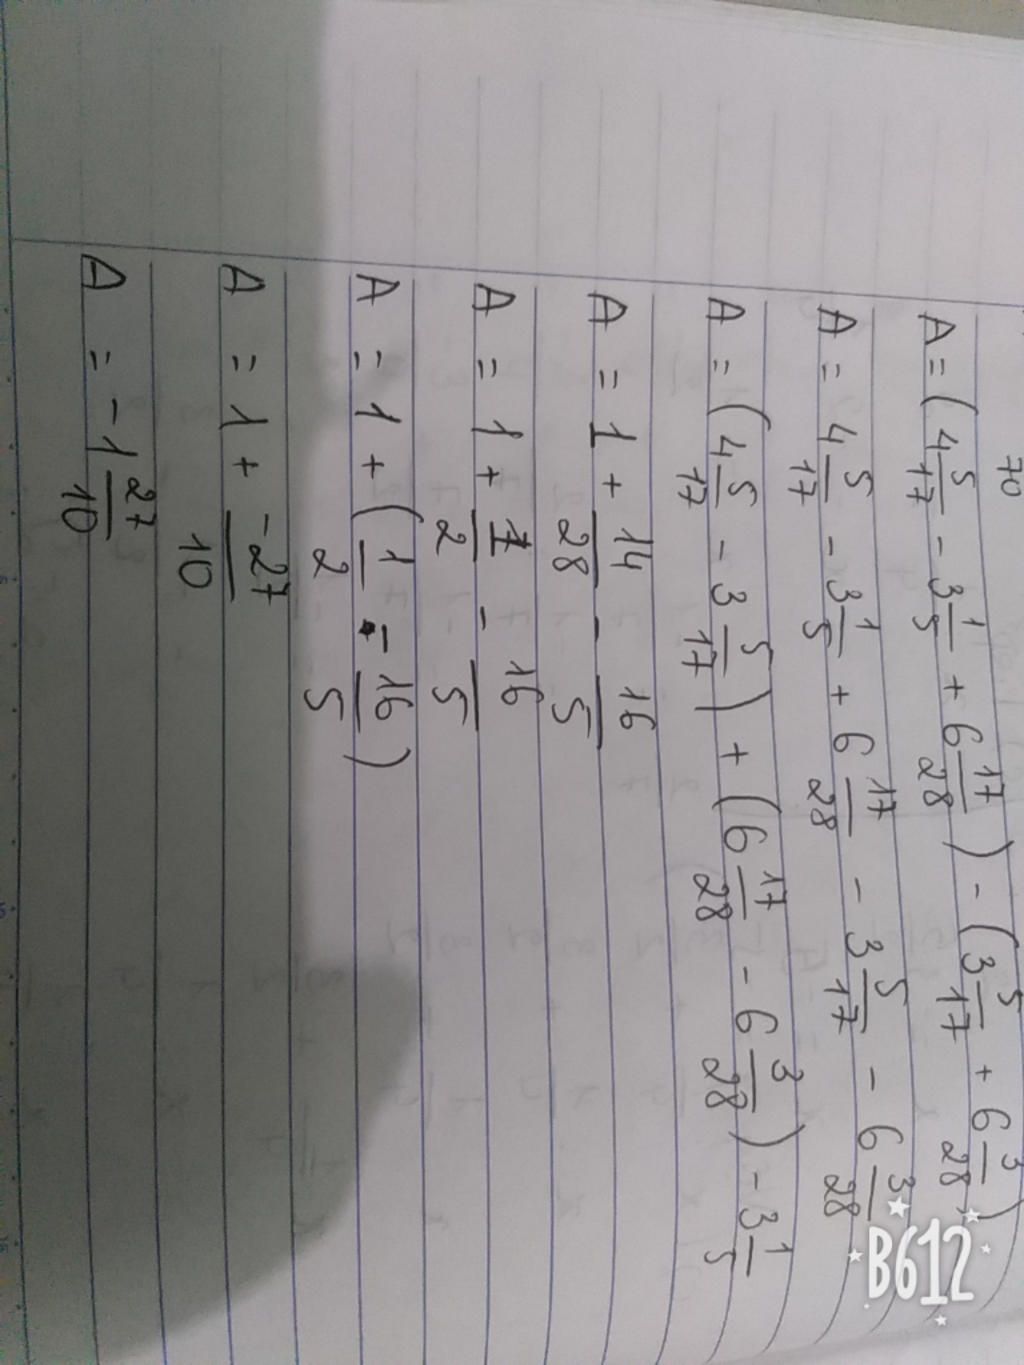 70
A = (4 5/17 - 3 1/5 + 6 17/28) - (3 5/17 + 6 3/28)
A = 4 5/17 - 3 1/5 + 6 17/28 - 3 5/17 - 6 3/28
A = (4 5/17 - 3 5/17) + (6 17/28 - 6 3/28) - 3 1/5
A = 1 + 14/28 - 16/5
A = 1 + 1/2 - 16/5
A = 1 + (1/2 - 16/5)
A = 1 + -27/10
A = -1 27/10
B612